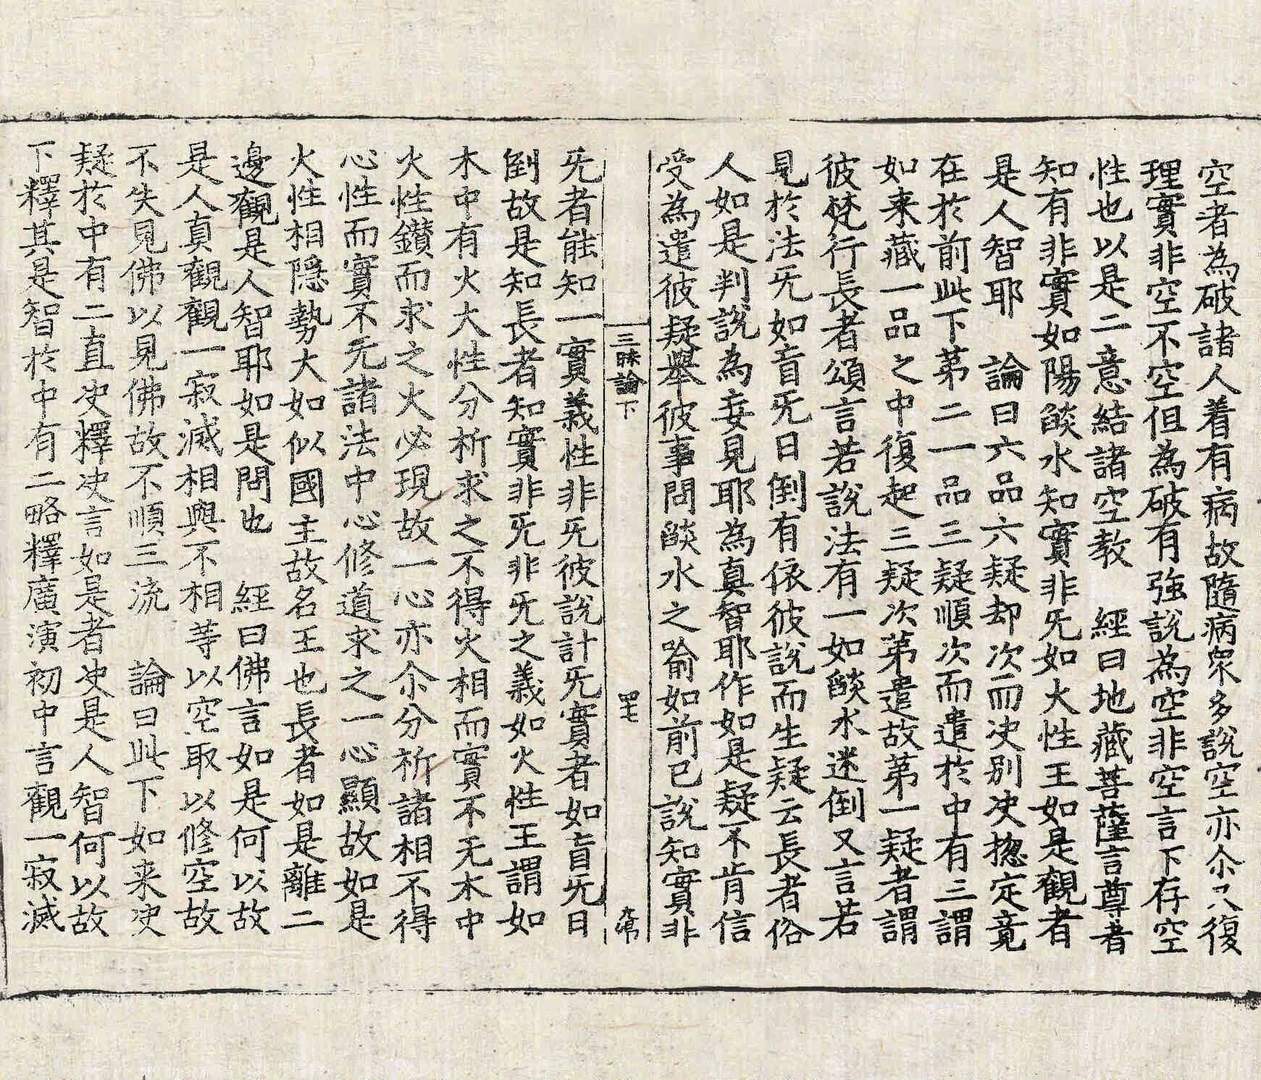 空者為破諸人着有病故隨病衆多說空亦尒只復
理實非空不空但為破有強說為空非空言下存空
性也以是二意結諸空教　經曰地藏菩薩言尊者
知有非實如陽燄水知實非旡如火性王如是觀者
是人智耶　論曰六品六疑却次而决別决揔定竟
在於前此下第二一品三疑順次而遣於中有三謂
如来藏一品之中復起三疑次第遣故第一疑者謂
彼梵行長者頌言若說法有一如燄水迷倒又言若
見於法旡如盲旡日倒有依彼說而生疑云長者俗
人如是判說為妄見耶為真智耶作如是疑不肯信
受為遣彼疑舉彼事問燄水之喻如前已說知實非
三昧論下　四七
旡者能知一實義性非旡彼說計旡實者如盲旡日
倒故是知長者知實非旡非旡之義如火性王謂如
木中有火大性分析求之不得火相而實不无木中
火性鑚而求之火必現故一心亦尒分析諸相不得
心性而實不无諸法中心修道求之一心顯故如是
火性相隱勢大如似國主故名王也長者如是離二
邊觀是人智耶如是問也　經曰佛言如是何以故
是人真觀觀一寂滅相與不相等以空取以修空故
不失見佛以見佛故不順三流　論曰此下如来决
疑於中有二直决釋决言如是者决是人智何以故
下釋其是智於中有二略釋廣演初中言觀一寂滅